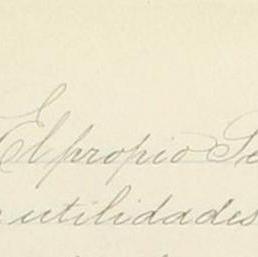 El propio Se
utilidades